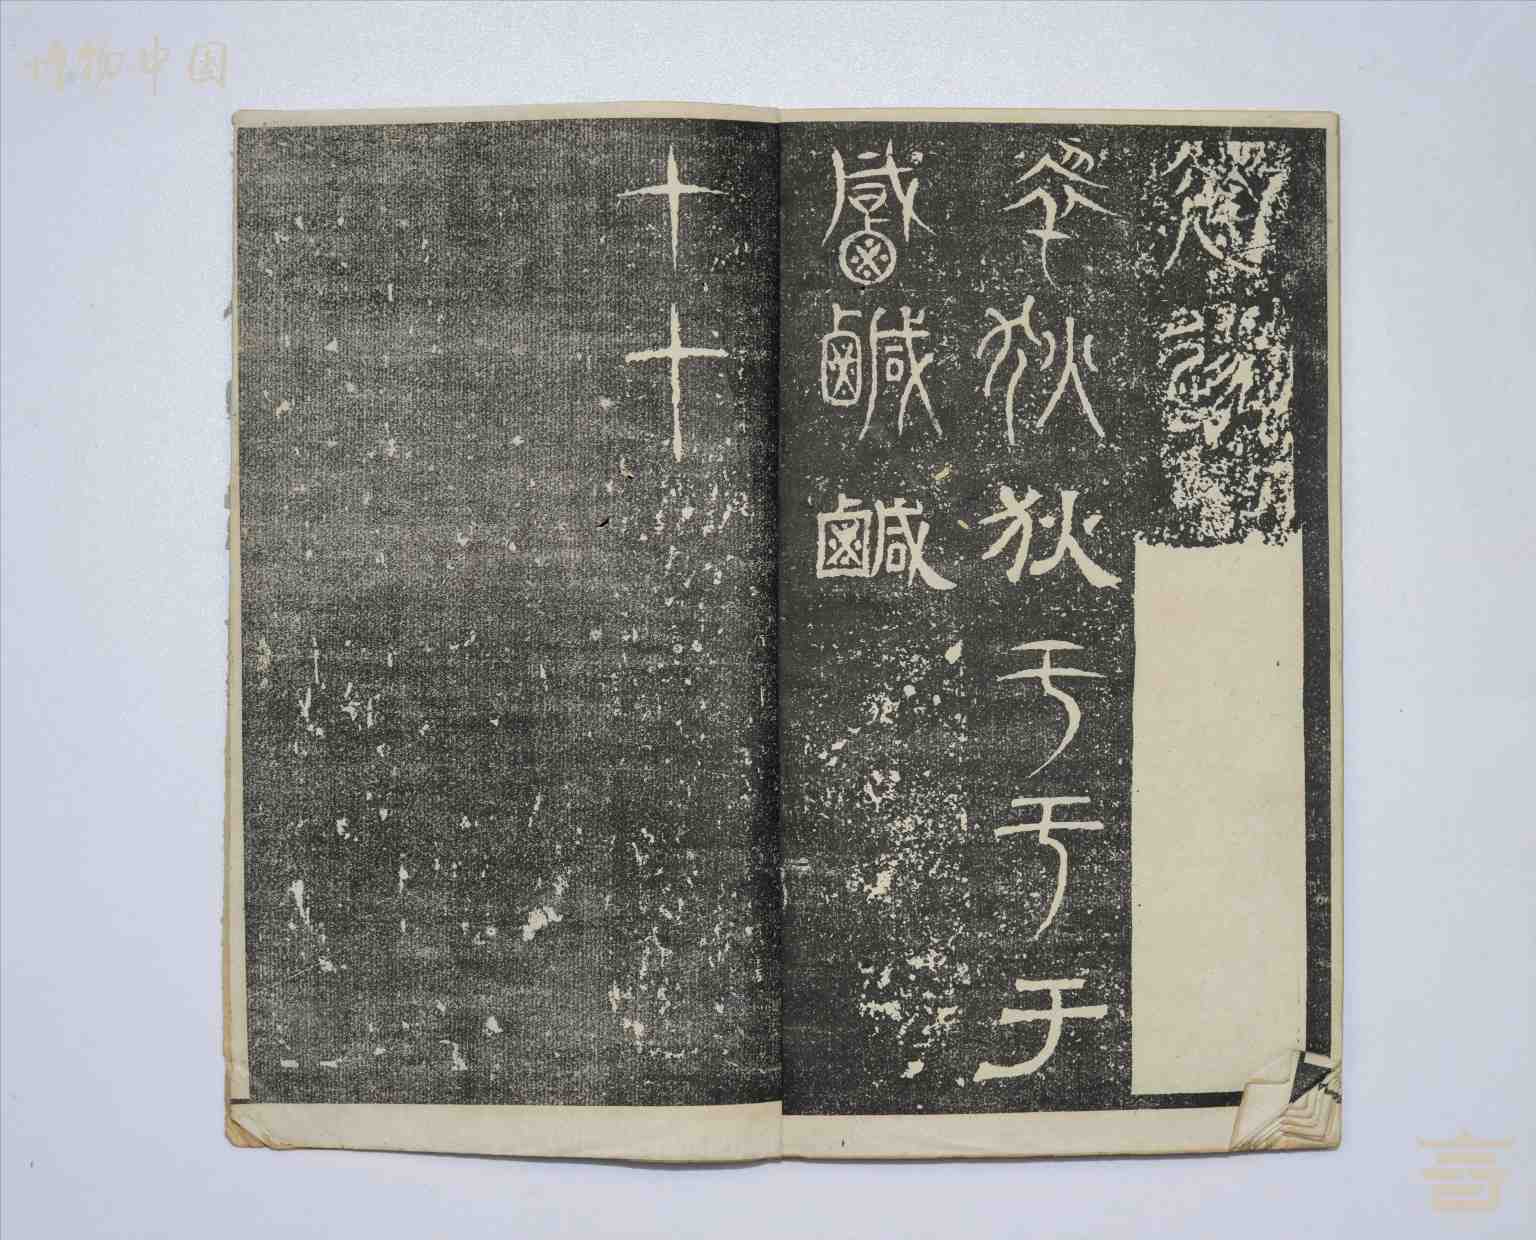 博物中国
狄狄狄于于于
鹹鹹鹹
十十